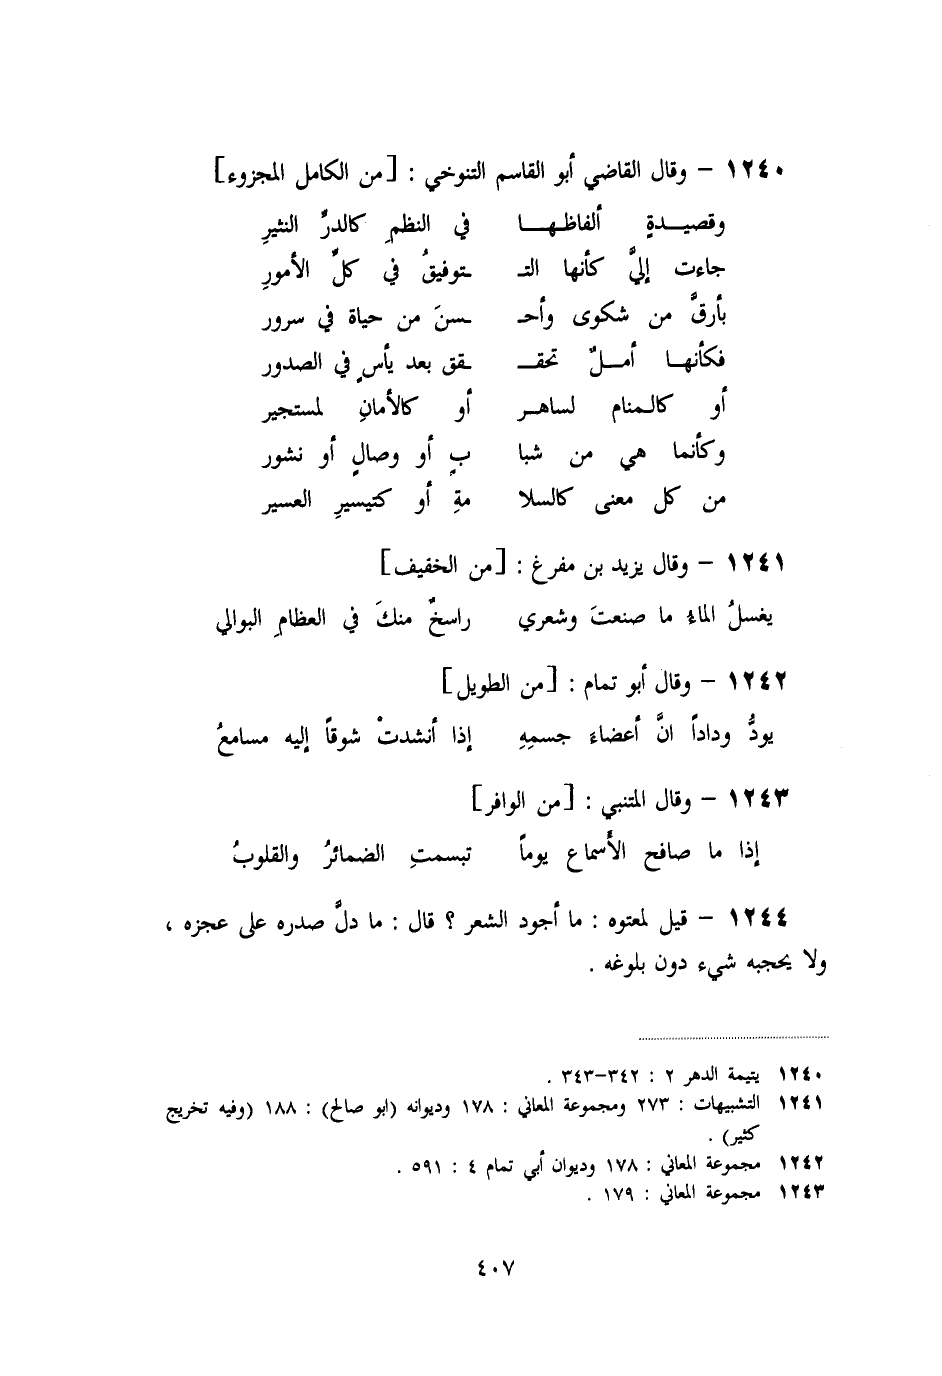 ١٢٤٠ – وقال القاضي أبو القاسم التنوخي : [من الكامل المجزوء]
وقصيـــدةٍ ألفاظـهـــا في النظمِ كالدرِّ النثيرِ
جاءت إليَّ كأنها التـ ـتوفيقُ في كلِّ الأمورِ
بأرقَّ من شكوى وأحـ ـسنَ من حياة في سرور
فكأنهـا أمـــلٌ تحقــ ـقق بعد يأسٍ في الصدور
أو كالـمنام لساهــر أو كالأمانِ لمستجير
وكأنما هي من شبا بٍ أو وصالٍ أو نشور
من كل معنى كالسلا مةِ أو كتيسيرِ العسير
١٢٤١ – وقال يزيد بن مفرغ : [من الخفيف]
يغسلُ الماءُ ما صنعتَ وشعري راسخٌ منكَ في العظامِ البوالي
١٢٤٢ – وقال أبو تمام : [من الطويل]
يودُّ وداداً انَّ أعضاءَ جسمِهِ إذا أنشدتْ شوقاً إليه مسامعُ
١٢٤٣ – وقال المتنبي : [من الوافر]
إذا ما صافح الأَسماع يوماً تبسمتِ الضمائرُ والقلوبُ
١٢٤٤ – قيل لمعتوه : ما أجود الشعر ؟ قال : ما دلَّ صدره على عجزه ،
ولا يحجبه شيء دون بلوغه .
١٢٤٠ يتيمة الدهر ٢ : ٣٤٢–٣٤٣ .
١٢٤١ التشبيهات : ٢٧٣ ومجموعة المعاني : ١٧٨ وديوانه (ابو صالح) : ١٨٨ (وفيه تخريج
كثير) .
١٢٤٢ مجموعة المعاني : ١٧٨ وديوان أبي تمام ٤ : ٥٩١ .
١٢٤٣ مجموعة المعاني : ١٧٩ .
٤٠٧